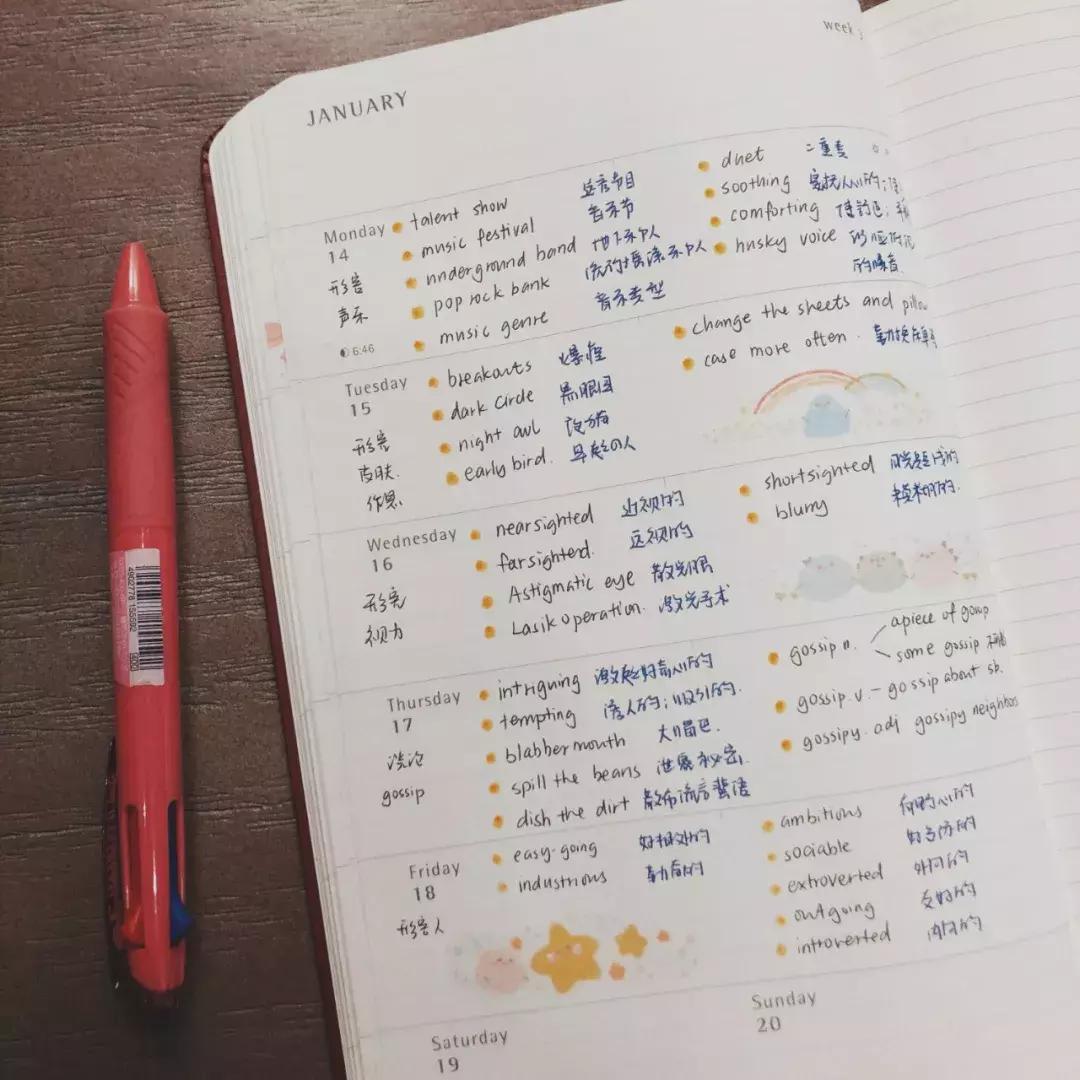 week 3
JANUARY
Monday
14
形容
声乐
6:46
talent show
music festival 音乐节
underground band 地下乐队
pop rock bank 流行摇滚乐队
music genre 音乐类型
duet 二重奏
soothing
comforting
husky voice
的嗓音
Tuesday
15
形容
皮肤
作息
breakouts 爆痘
dark circle 黑眼圈
night owl 夜猫
early bird. 早起的人
change the sheets and pillow
case more often.
Wednesday
16
形容
视力
nearsighted 近视的
farsighterd. 远视的
Astigmatic eye 散光眼
Lasik operation. 激光手术
shortsighted
blurry 模糊的.
Thursday
17
谈论
gossip
intriguing 激起好奇心的
tempting 诱人的;吸引的.
blabbermouth 大嘴巴.
spill the beans 泄露秘密.
dish the dirt 散布流言蜚语
gossip n.
a piece of gossip
some gossip
gossip.v.- gossip about sb.
gossipy.adj gossipy neighbors
Friday
18
形容人
easy-going 好相处的
industrious 勤奋的
ambitious 有野心的
sociable 好交际的
extroverted 外向的
outgoing 友好的
introverted 内向的
Saturday
19
Sunday
20
4902778 155592